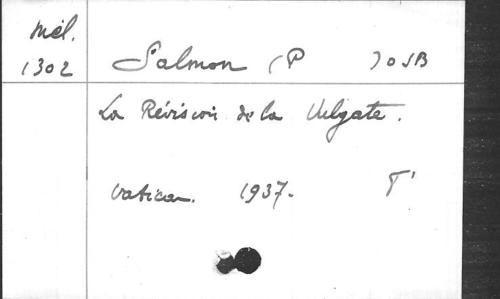 Mél.
1302
Salmon (P ) OSB
La Révision de la Vulgate.
Vatican. 1937. T'